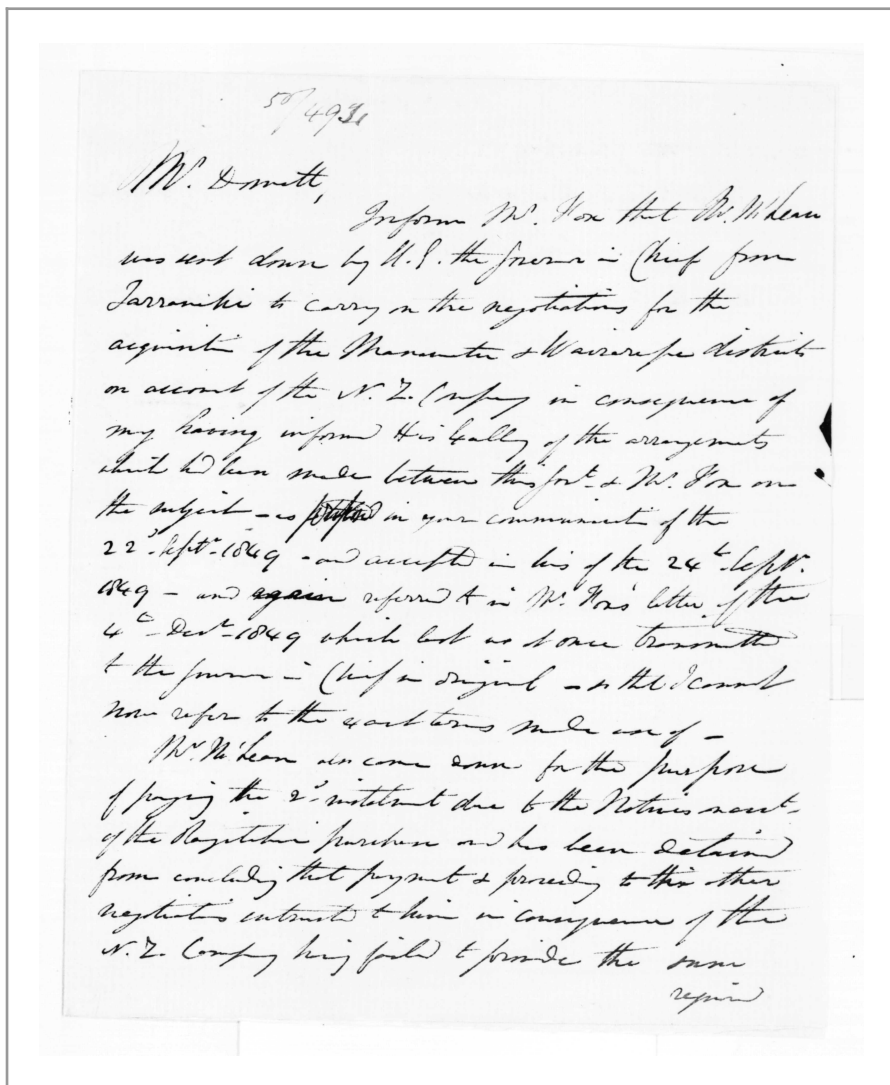 50/493
Mr. Domett,
Inform Mr. Fox that Mr. McLean
was sent down by H.E. the Governor in Chief from
Tarranaki to carry on the negotiations for the
acquisition of the Manawatu & Wairarapa districts
on account of the N.Z. Company in consequence of
my having informed His Excelly of the arrangements
which had been made between this Govt. & Mr. Fox on
the subject - as in your communication of the
22d. Septr. 1849 - and accepted in his of the 24th Septr.
1849 - and again referred to in Mr. Fox's letter of the
4th Decr. 1849 which last was at once transmitted
to the Governor in Chief in original - so that I cannot
now refer to the exact terms made use of -
Mr. McLean also came down for the purpose
of paying the 2d. instalment due to the Natives on acct.
of the Rangitikei purchase and has been detained
from concluding that payment & proceeding to the other
negotiations entrusted to him in consequence of the
N.Z. Company having failed to provide the sum
required